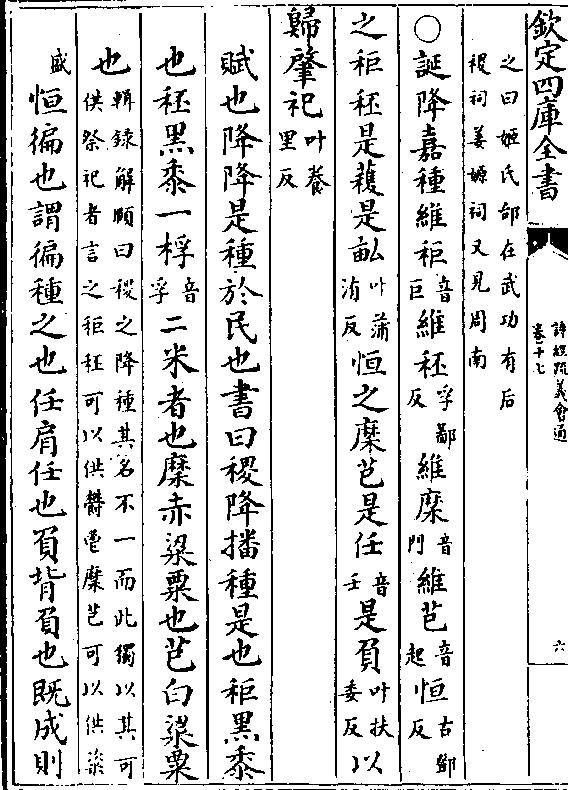 欽定四庫全書
詩經疏義會通
卷十七
六
之曰姬氏邰在武功有后
稷祠姜嫄祠又見周南
○誕降嘉種維秬音巨維秠孚鄙反維穈音門維芑音起恒古鄧反
之秬秠是穫是畝叶蒲洧反恒之穈芑是任音壬是負叶扶委反以
歸肇祀叶養里反
賦也降降是種於民也書曰稷降播種是也秬黑黍
也秠黑黍一桴音孚二米者也穈赤粱粟也芑白粱粟
也輯錄解頤曰稷之降種其名不一而此獨以其可供祭祀者言之秬秠可以供鬱鬯穈芑可以供粢
盛恒徧也謂徧種之也任肩任也負背負也既成則